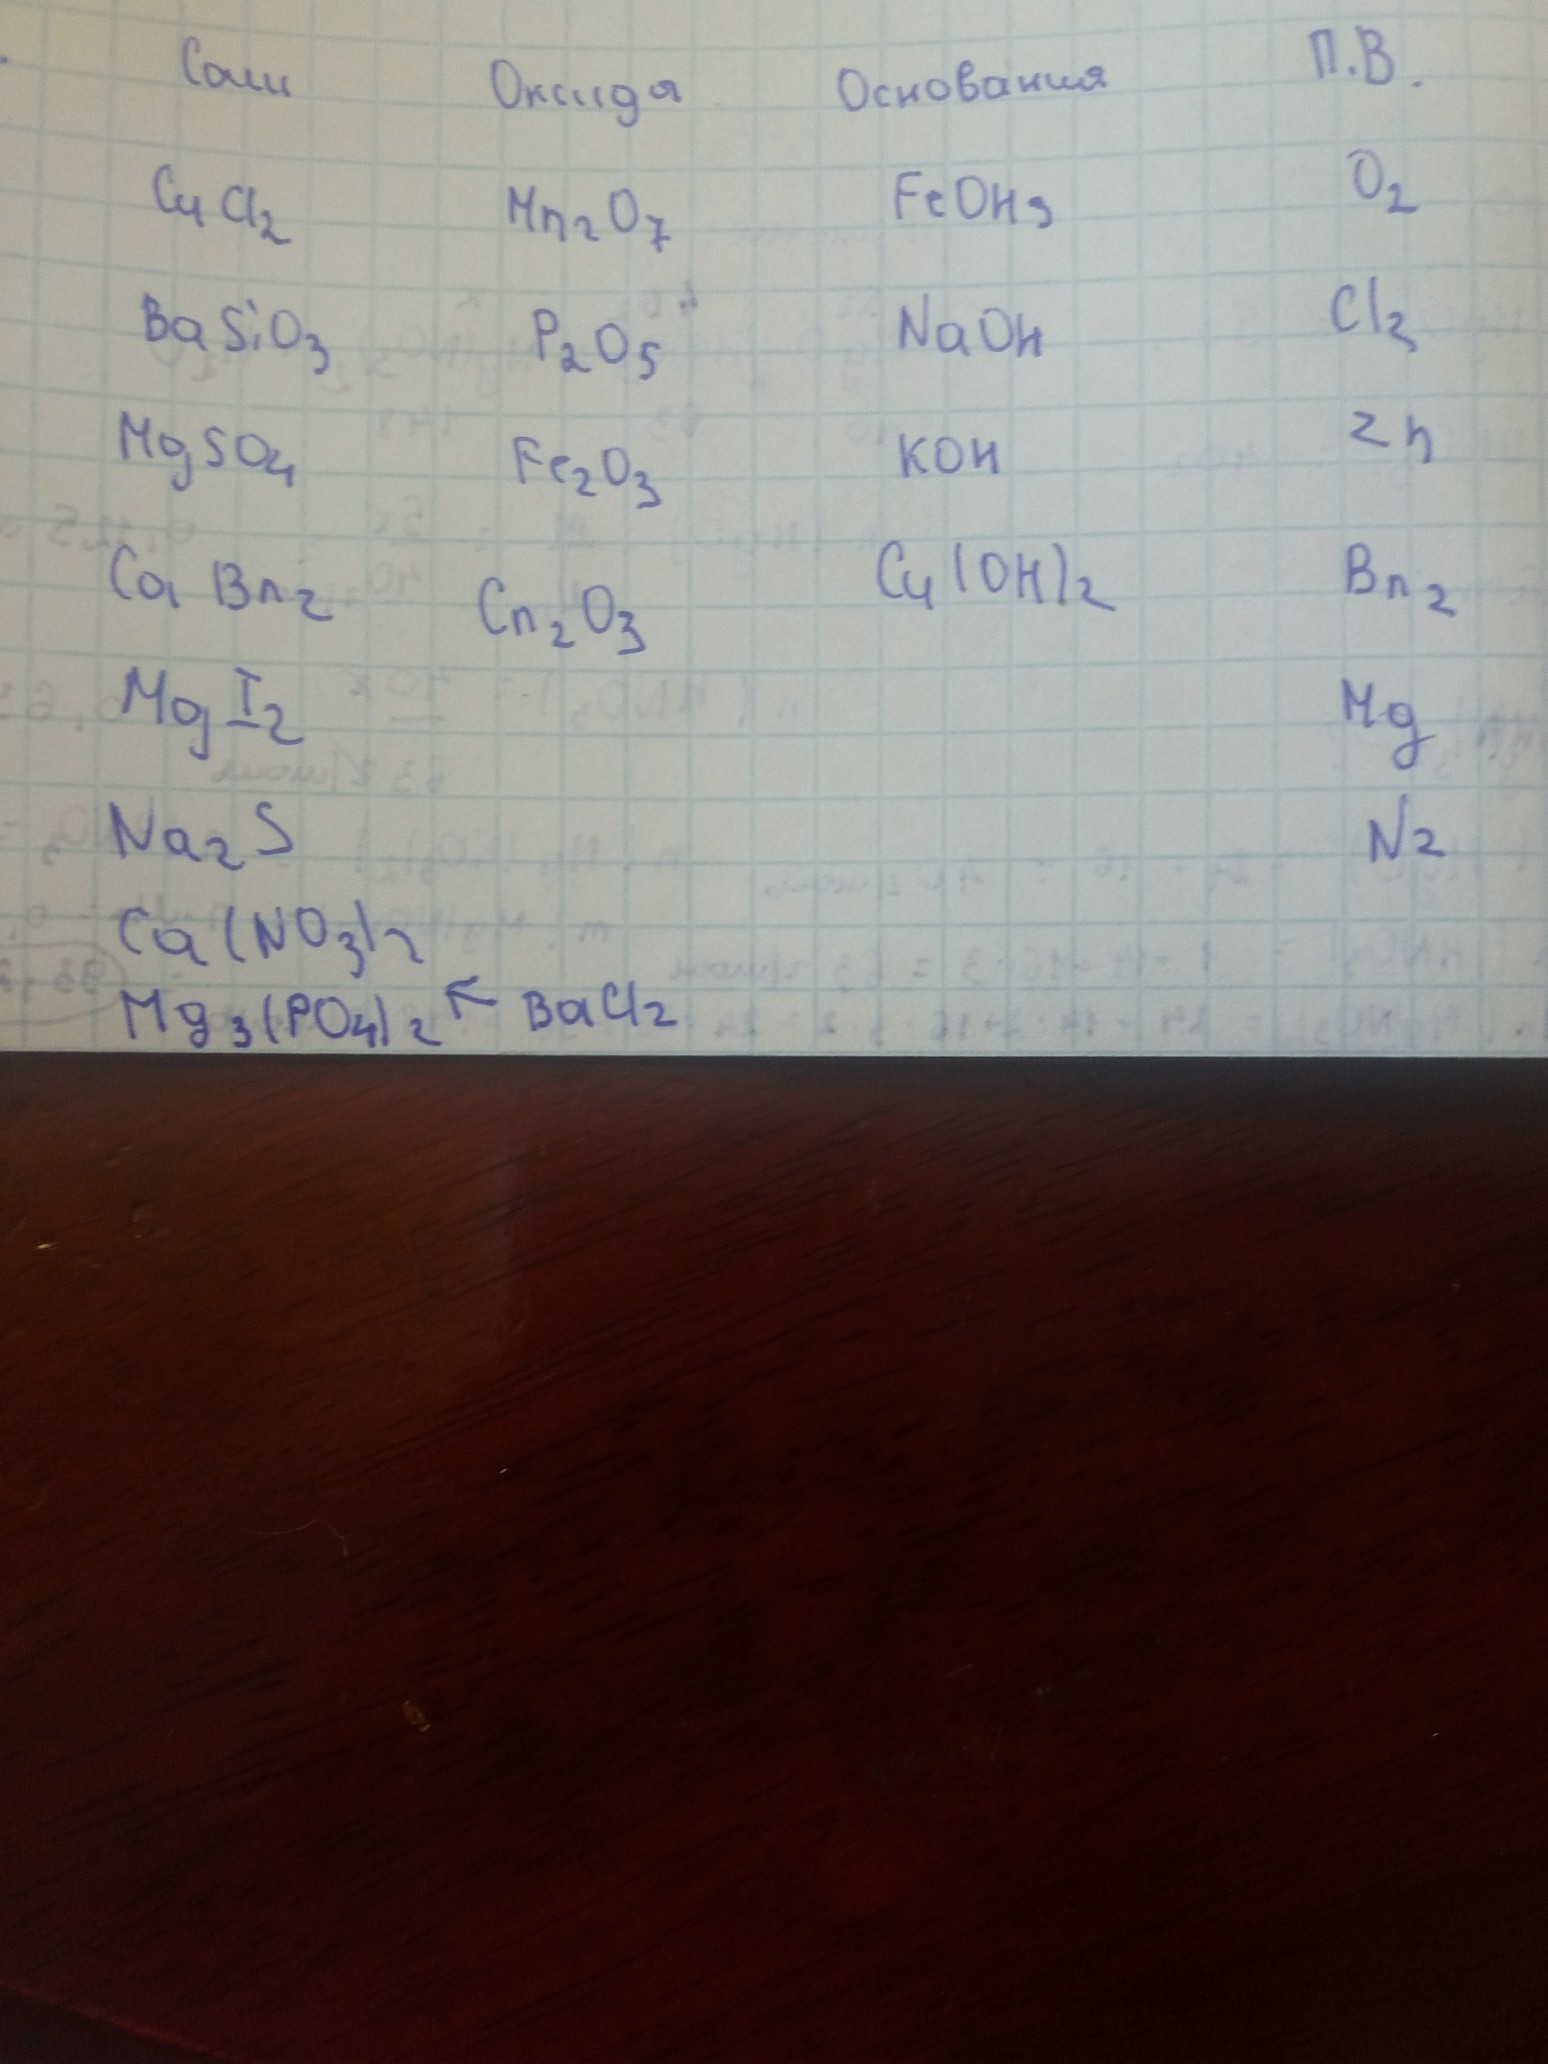 Соли Оксиды Основания П.В.
CuCl2 Mn2O7 FeOH3 O2
BaSiO3 P2O5 NaOH Cl2
MgSO4 Fe2O3 KOH Zn
CaBr2 Cr2O3 Cu(OH)2 Br2
MgI2 Mg
Na2S N2
Ca(NO3)2
Mg3(PO4)2 ← BaCl2